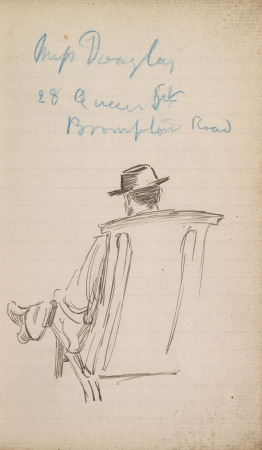 Miss Douglas
28 Queen St
Brompton Road